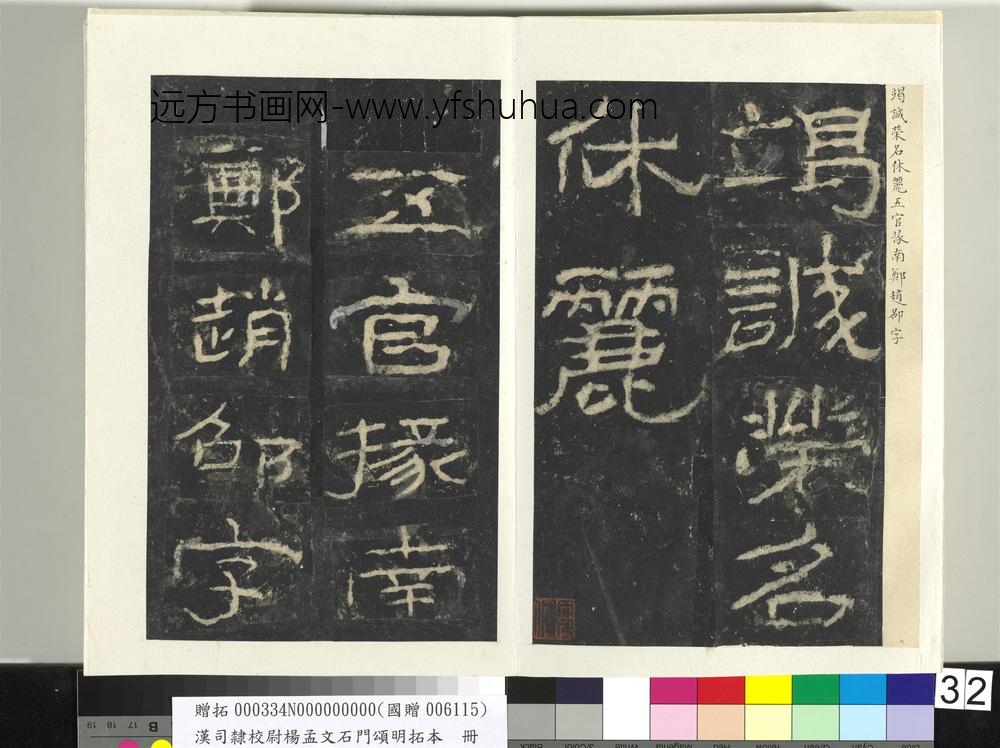 竭誠榮名休麗五官掾南鄭趙邵字
竭誠榮名
休麗
五官掾南
鄭趙邵字
远方书画网-www.yfshuhua.com
32
贈拓 000334N000000000(國贈 006115)
漢司隸校尉楊孟文石門頌明拓本 冊
B 17 18 19
Black 3/Color White Magenta Red Yellow Green Cyan Blue